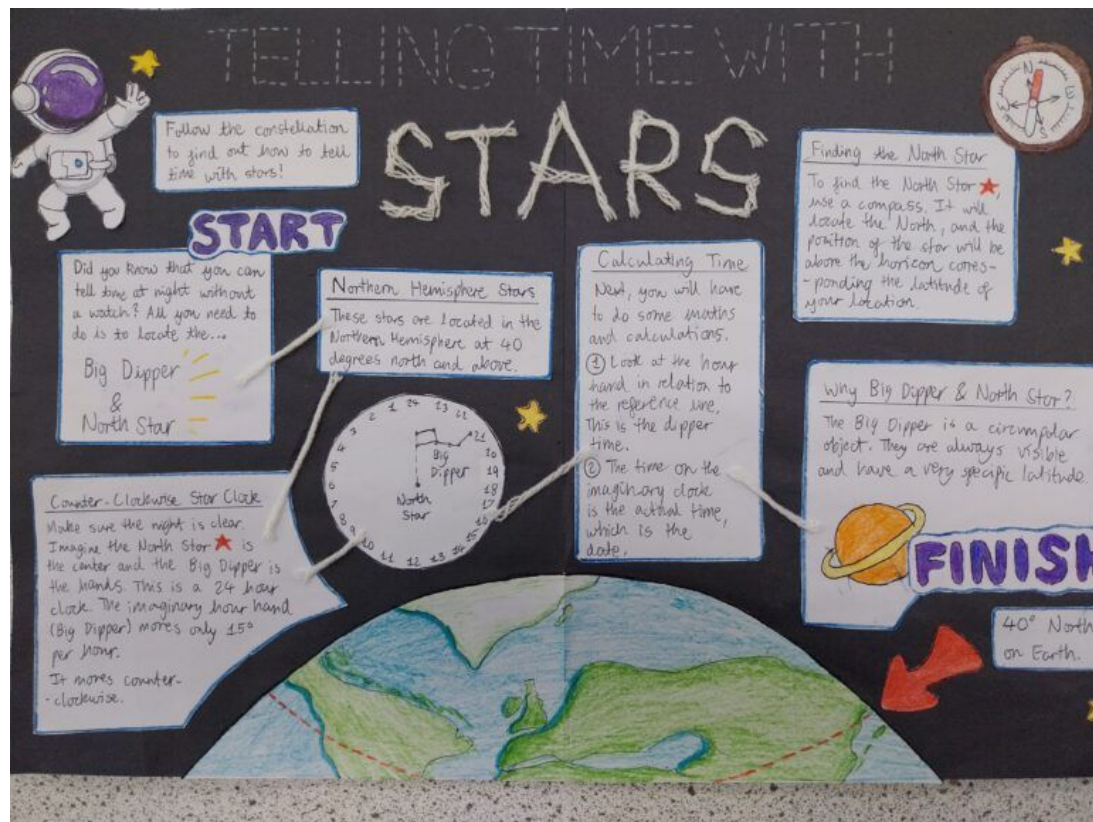 TELLING TIME WITH
STARS
Follow the constellation
to find out how to tell
time with stars!
START
Did you know that you can
tell time at night without
a watch? All you need to
do is to locate the...
Big Dipper
&
North Star
Northern Hemisphere Stars
These stars are located in the
Northern Hemisphere at 40
degrees north and above.
Counter-Clockwise Star Clock
Make sure the night is clear.
Imagine the North Star is
the center and the Big Dipper is
the hands. This is a 24 hour
clock. The imaginary hour hand
(Big Dipper) moves only 15°
per hour.
It moves counter-
-clockwise.
2 1 24 23 22
3 21
4 20
5 19
6 18
7 17
8 16
9 15
10 14
11 12 13
Big
Dipper
North
Star
Calculating Time
Next, you will have
to do some maths
and calculations.
① Look at the hour
hand in relation to
the reference line,
This is the dipper
time.
② The time on the
imaginary clock
is the actual time,
which is the
date.
Finding the North Star
To find the North Star,
use a compass. It will
locate the North, and the
position of the star will be
above the horizon corres-
-ponding the latitude of
your location.
N
E
S
Why Big Dipper & North Star?
The Big Dipper is a circumpolar
object. They are always visible
and have a very specific latitude.
FINISH
40° North
on Earth.